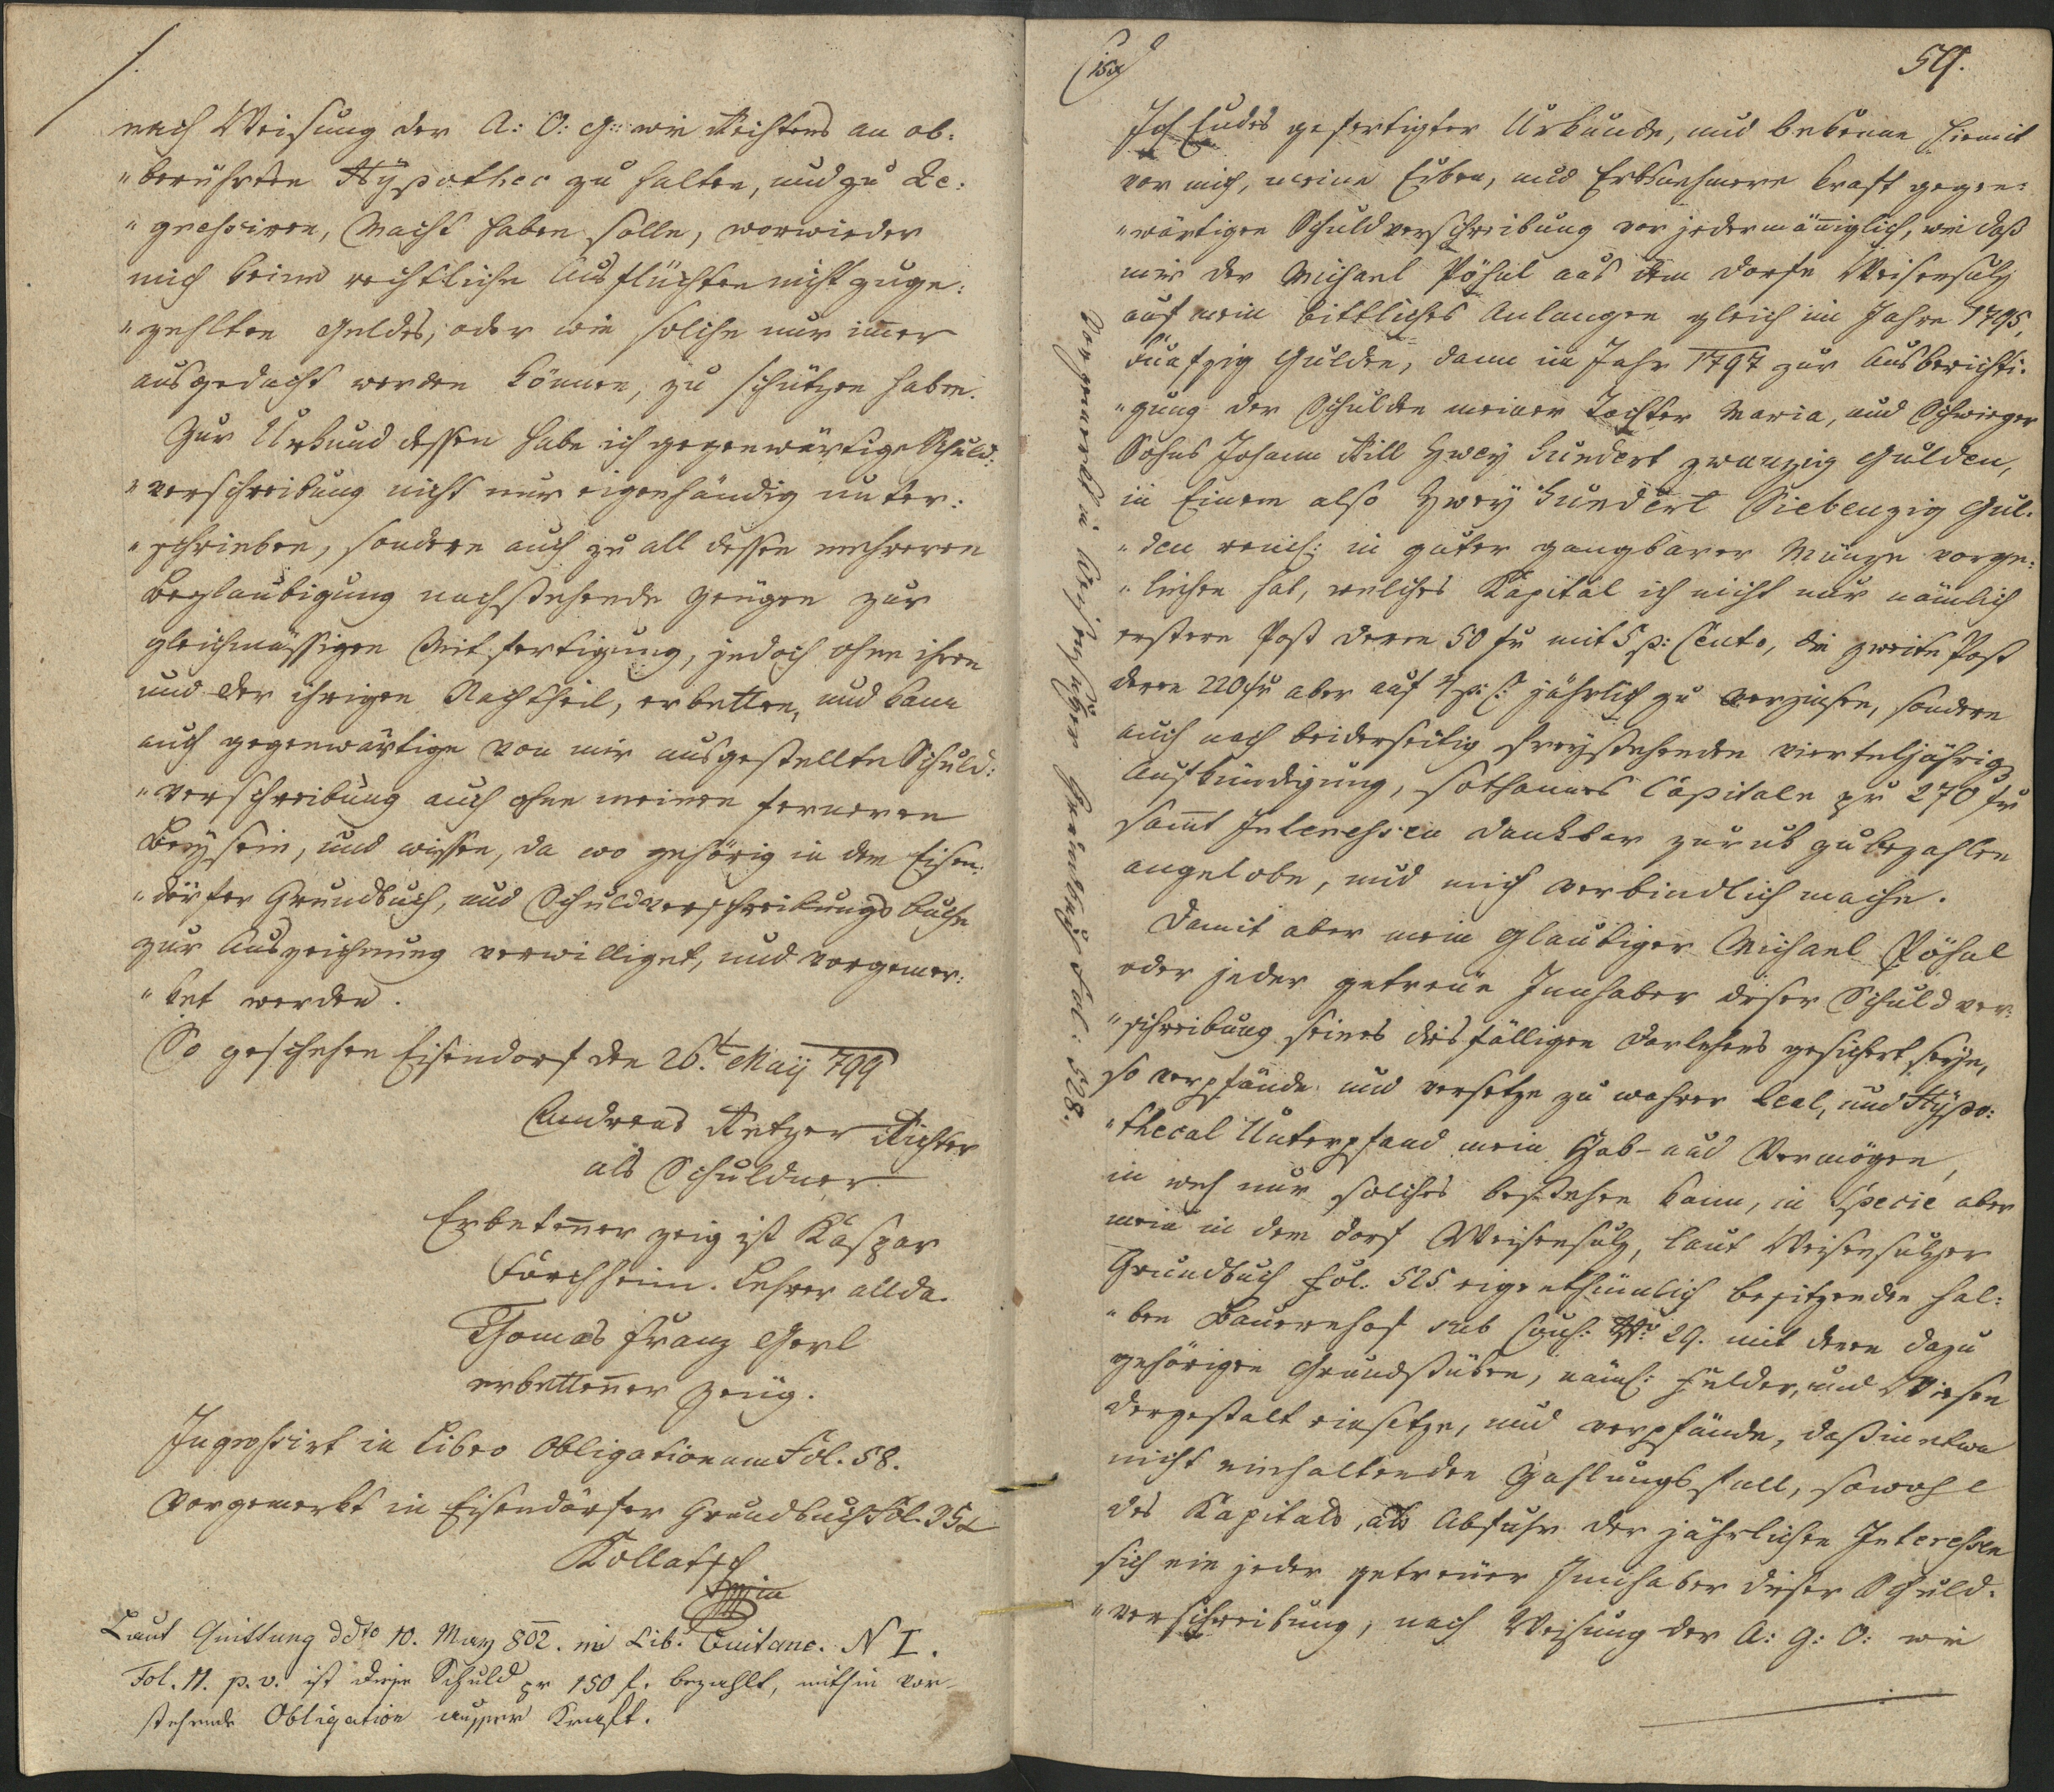 nach Weisung der A: O: G: wie Rechtens an ob=
"berührten Hÿpothec zu halten, und zu Re=
"gressiren, Macht haben solle, worwieder
mich keine rechtliche Ausflüchten nicht zuge=
"zehlten Geldes, oder wie solche nur im̄er
ausgedacht werden können, zu schützen haben.
Zur Urkund dessen habe ich gegenwärtige Schuld=
"verschreibung nicht nur eigenhändig unter=
"schrieben, sondern auch zu all dessen mehreren
Beglaubigung nachstehende Zeugen zur
gleichmässigen Mitfertigung, jedoch ohne ihren
und der ihrigen Nachtheil, erbetten, und kann
auch gegenwärtige von mir ausgestellte Schuld=
"verschreibung auch ohne meinen ferneren
Beÿsein, und wissen, da wo gehörig in dem Eisen=
"dörfer Grundbuch, und Schuldverschreibungs buche
zur Auszeichnung verwilliget, und vorgemer=
"ket werden.
So geschehen Eisendorf den 26.t Maÿ 799
Andreas Retzer Richter
als Schuldner
Erbeten̄er zeig ist Kaspar
Forchheim. Lehrer allda.
Thomas Franz Gerl
erbetten̄er Zeüg.
Ingrossirt in Libro Obligationum Fol. 58.
Vorgemerkt in Eisendörfer Grundbuch Fol. 352
Kollatsch
mpia
Laut Quittung ddto 10. May 802. in Lib. Quitanc. N I.
Fol. 11. p. v. ist diese Schuld pr 150 f. bezahlt, mithin vor-
stehende Obligation ausser Kraft.
59.
Ich Endes gefertigter Urkunde, und bekenne hiemit
vor mich, meine Erben, und Erbsnehmere kraft gegen=
"wärtigen Schuldverschreibung vor jedermän̄iglich, wie daß
mir der Michael Pöhal aus dem Dorfe Weisensulz
auf mein bittliches Anlangen gleich im Jahre 1795,
Funfzig Gulden, dann im Jahr 1797 zur Ausberichti=
"gung der Schulden meiner Tochter Maria, und Schwieger
Sohns Johann Rill Zweÿ hundert zwanzig Gulden,
in Einem also Zweÿ hundert Siebenzig Gul=
"den reinl: in guter gangbarer Münze vorge=
"liehen hat, welches Kapital ich nicht nur nämlich
erstere Post deren 50 fr mit 5 p: Cento, die zweite Post
deren 220 fr aber auf 4 p: C: jährlich zu verzinsen, sondern
auch nach beiderseitig freÿstehenden vierteljährig
Aufkündigung, sothannes Capitale pr 270 fr
sam̄t Interessen dankbar zuruk zubezahlen
angelobe, und mich verbindlich mache.
Damit aber mein Glaubiger Michael Pöhal
oder jeder getreüe Innhaber dieser Schuldver=
"schreibung seines diesfälligen Darlehens gesichert seÿe,
so verpfände und versetze zu wahrer Real, und Hÿpo=
"thecal Unterpfand mein Hab- und Vermögen,
in weh nur solches bestehen kann, in Specie aber
mein in dem Dorf Weisensulz, laut Weisensulzer
Grundbuch Fol. 525 eigenthümlich besitzenden hal=
"ben Bauernhof sub Consc: Nro 29. mit denen dazu
gehörigen Grundstücken, näml: Felder, und Wiesen
dergestalt einsetze, und verpfände, daß in etwa
nicht einhaltenden Zahlungs fall, sowohl
des Kapitals, als Abfuhr der jährlichen Interessen
sich ein jeder getreüer Innhaber dieser Schuld=
"verschreibung, nach Weisung der A: G: O: wie
Vorgemerkt in Weisensulzer Grundbuch Fol: 528.